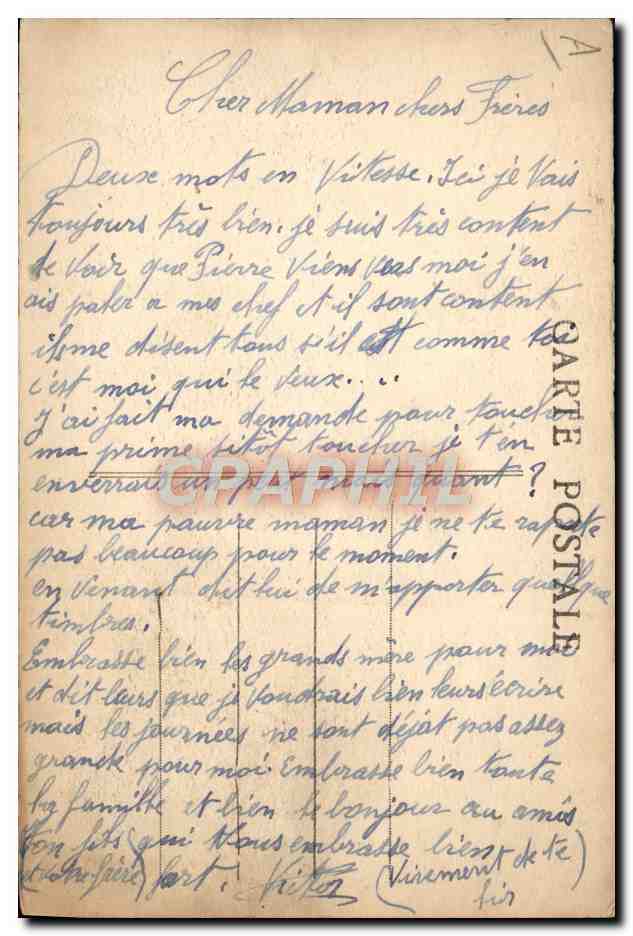 A
Cher Maman chers Frères
Deux mots en Vitesse. Ici je Vais
toujours très bien. je suis très content
de Voir que Pierre Viens vers moi j'en
ais parler a mes chef et il sont content
ils me disent tous s'il est comme toi
c'est moi qui le veux....
J'ai fait ma demande pour toucher
ma prime sitôt toucher je t'en
enverrais un peut mais quant?
car ma pauvre maman je ne te rapporte
pas beaucoup pour le moment.
en venant dit lui de m'apporter quelque
timbres.
Embrasse bien les grands mère pour moi
et dit leurs que je voudrais bien leurs écrire
mais les journées ne sont déjat pas assez
grande pour moi. Embrasse bien toute
la famille et bien le bonjour au amis
ton fils (qui Vous embrasse bien
et votre frère) fort. Victor (Vivement de te
lir)
CARTE POSTALE
CPAPHIL